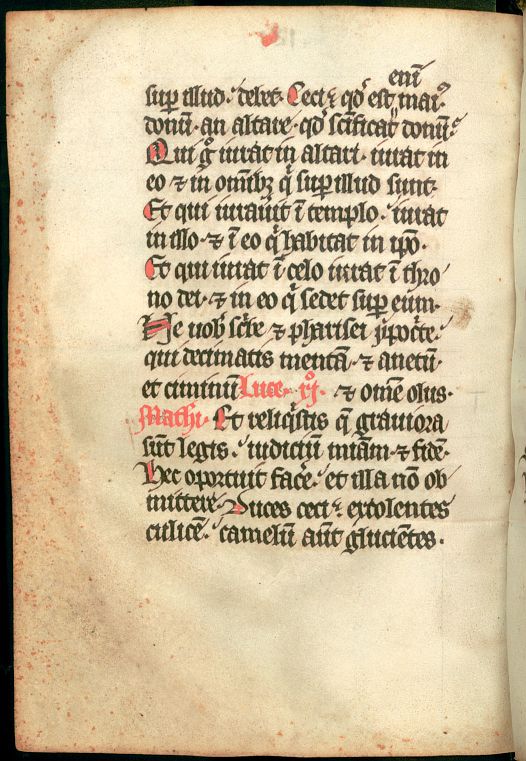 enī
sup illud. debet. Ceci qd̕ est mai᷒
donū. an altare. qd̕ sc̄ificat donū.
Qui g̊ iurat in altari. iurat in
eo ⁊ in om̄ibꝫ q̄ sup illud sunt.
Et qui iurauit ī templo. iurat
in illo. ⁊ ī eo q̄ habitat in ip̄o.
Et qui iurat ī celo iurat ī thro
no dei. ⁊ in eo q̄ sedet sup eum.
Ve uob̄ sc̄be ⁊ pharisei ypoc̄te.
qui decimatis mentā. ⁊ anetū.
et ciminū Luce. xj. ⁊ om̄e olus.
Mathi. Et reliq̄stis q̄ grauiora
sūt legis. iudiciū mīam ⁊ fidē.
Hec oportuit fac̄e. et illa nō ob
mittere. Duces ceci. extolentes
culicē. camelū aūt glucientes.